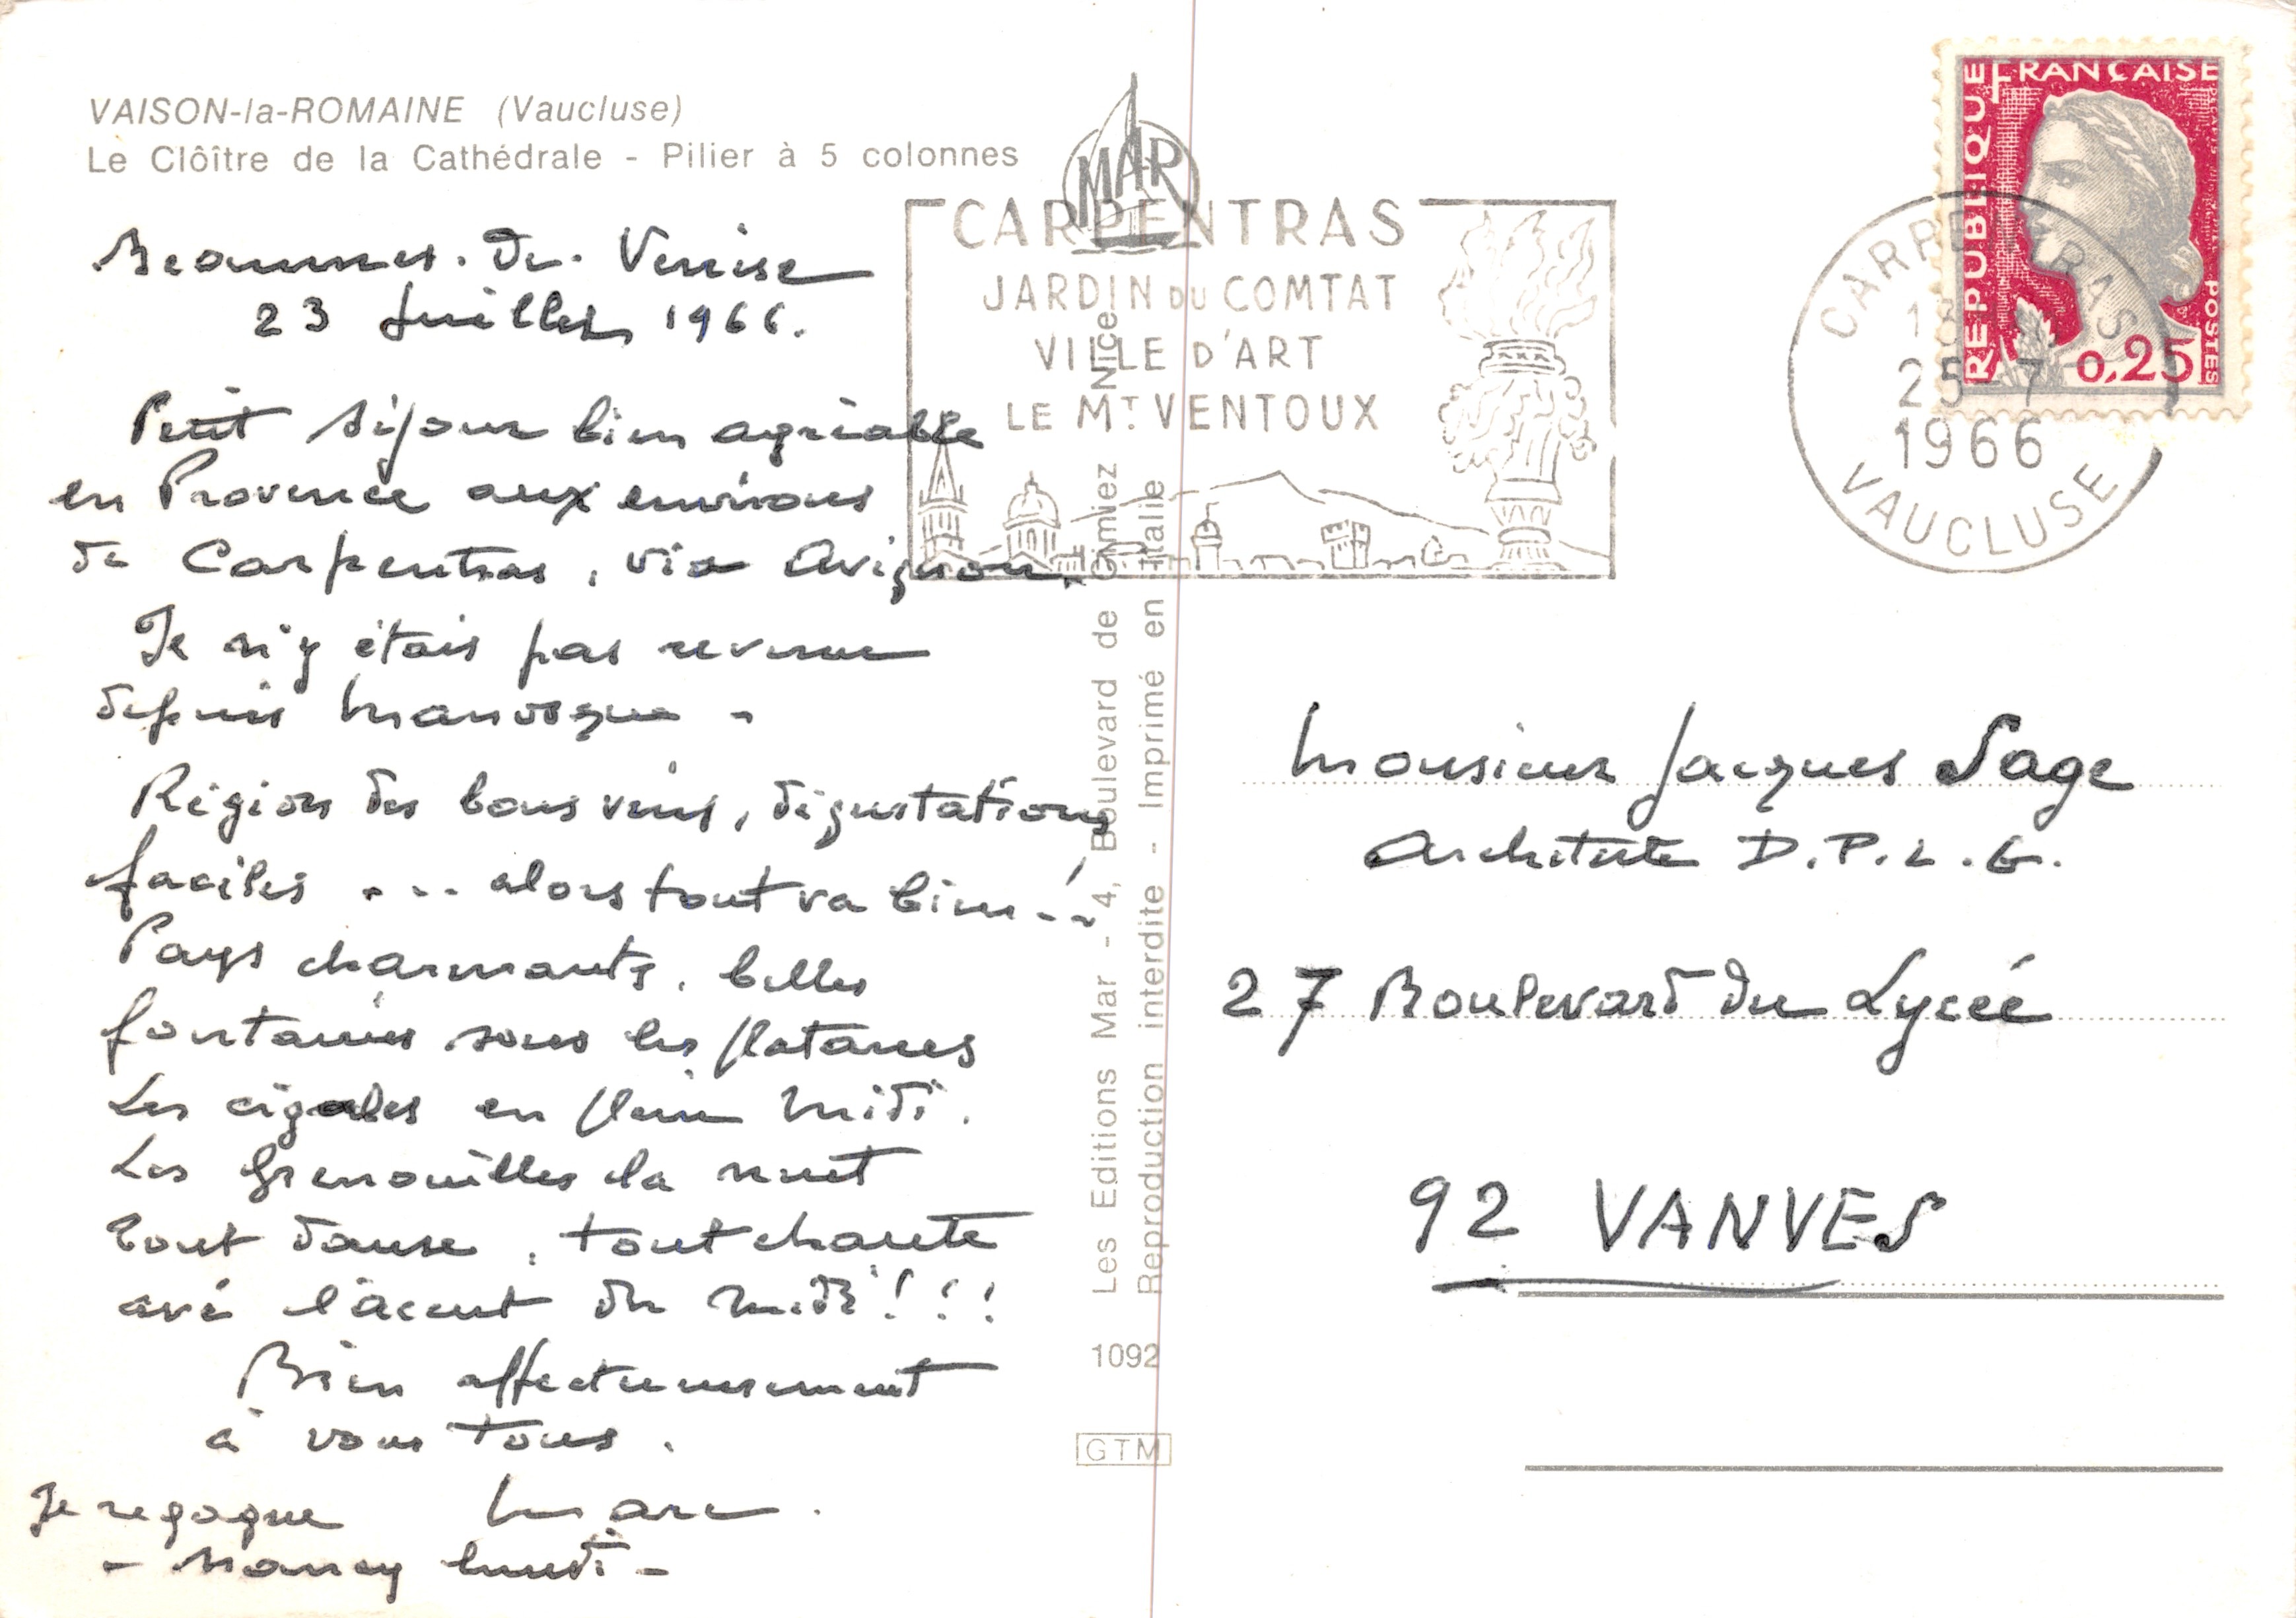 VAISON-la-ROMAINE (Vaucluse)
Le Clôître de la Cathédrale - Pilier à 5 colonnes
Beaumes. de. Venise
23 Juillet 1966.
Petit séjour bien agréable
en Provence aux environs
de Carpentras, via Avignon.
Je n'y étais pas revenu
depuis Manosque -
Région des bons vins, dégustations
faciles ... alors tout va bien ..!
Pays charmants, belles
fontaines sous les platanes
Les cigales en plein midi.
Les Grenouilles la nuit
Tout danse, tout chante
avé l'accent du midi!!!
Bien affectueusement
à vous tous.
Je regagne Marc.
- Nancy lundi -
MAR
CARPENTRAS
JARDIN DU COMTAT
VILLE D'ART
LE MT. VENTOUX
Les Editions Mar - 4, Boulevard de Cimiez Nice
Reproduction interdite - Imprimé en Italie
1092
GTM
REPUBLIQUE FRANÇAISE
POSTES
0,25
CARPENTRAS
25-7
1966
VAUCLUSE
Monsieur Jacques Sage
Architecte D.P.L.G.
27 Boulevard du Lycée
92 VANVES